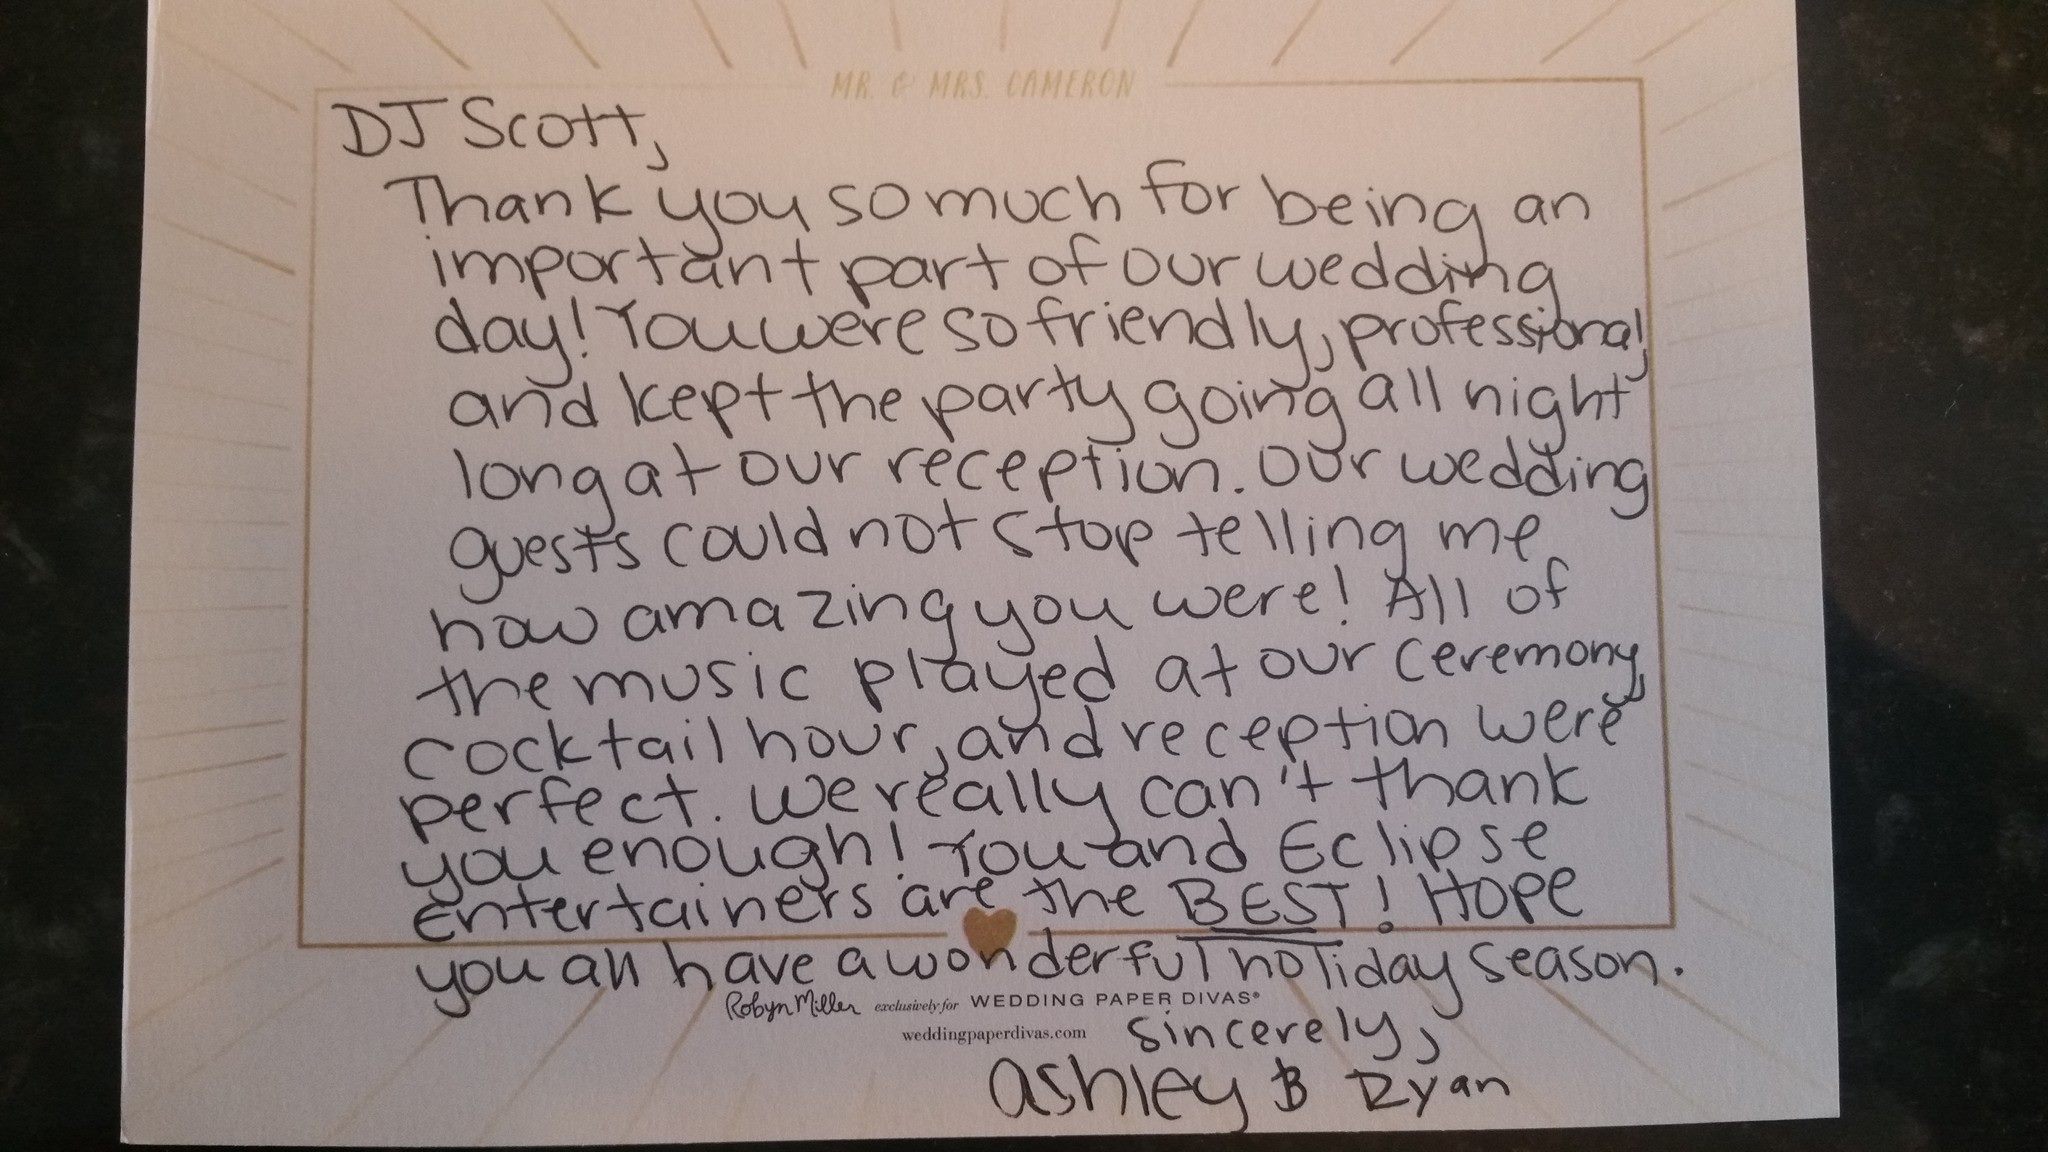 MR. & MRS. CAMERON
DJ Scott,
Thank you so much for being an
important part of our wedding
day! You were so friendly, professional,
and kept the party going all night
long at our reception. Our wedding
guests could not stop telling me
how amazing you were! All of
the music played at our ceremony,
cocktail hour, and reception were
perfect. We really can't thank
you enough! You and Eclipse
Entertainers are the BEST! Hope
you all have a wonderful holiday season.
Robyn Miller exclusively for WEDDING PAPER DIVAS®
weddingpaperdivas.com
sincerely,
Ashley & Ryan